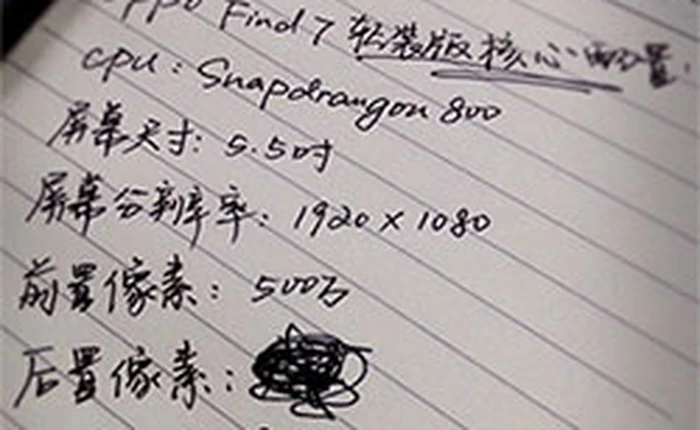 oppo Find 7 轻装版核心配置:
CPU: Snapdrangon 800
屏幕尺寸: 5.5吋
屏幕分辨率: 1920 x 1080
前置像素: 500万
后置像素: